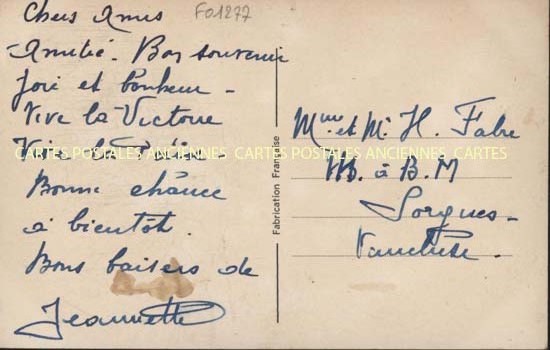 Chers Amis
F01277
Amitié. Bon souvenir
Joie et bonheur -
Vive la Victoire
Vive la
CARTES POSTALES ANCIENNES CARTES POSTALES ANCIENNES CARTES
Bonne chance
à bientôt.
Bons baisers de
Jeannette
Fabrication Française
Mme et Mr H. Fabre
à B.M
Sorgues-
Vaucluse.